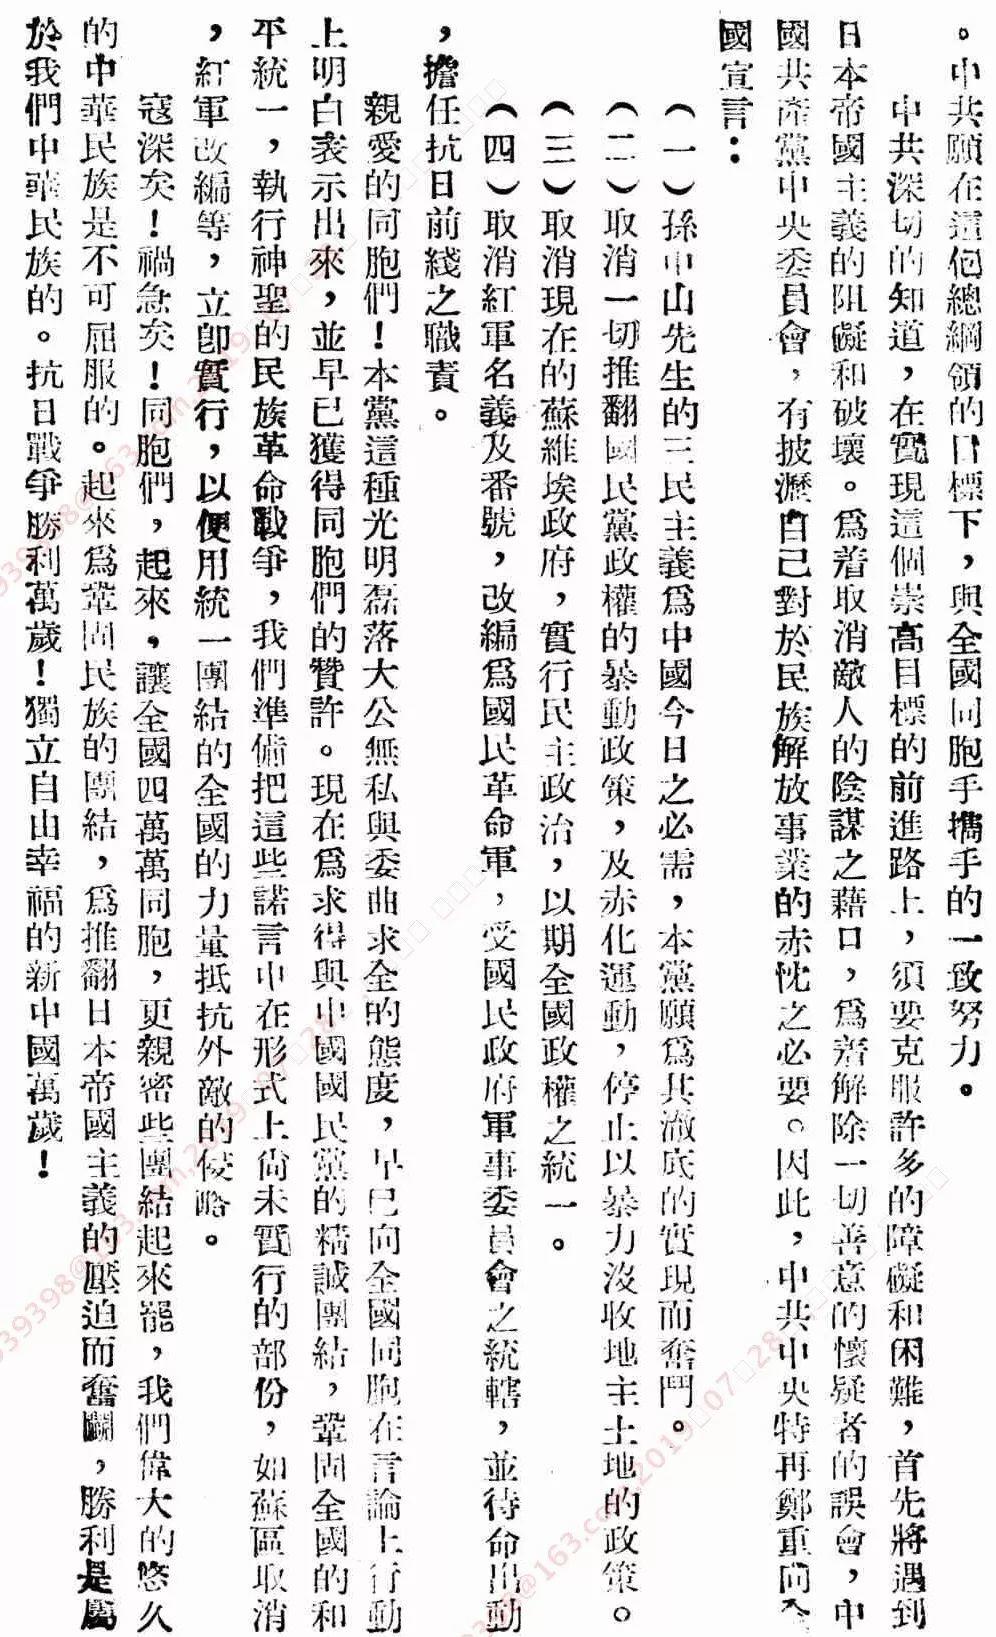 。中共願在這個總綱領的目標下，與全國同胞手攜手的一致努力。
中共深切的知道，在實現這個崇高目標的前進路上，須要克服許多的障礙和困難，首先將遇到
日本帝國主義的阻礙和破壞。爲着取消敵人的陰謀之藉口，爲着解除一切善意的懷疑者的誤會，中
國共產黨中央委員會，有披瀝自己對於民族解放事業的赤忱之必要。因此，中共中央特再鄭重向全
國宣言：
（一）孫中山先生的三民主義爲中國今日之必需，本黨願爲其澈底的實現而奮鬥。
（二）取消一切推翻國民黨政權的暴動政策，及赤化運動，停止以暴力沒收地主土地的政策。
（三）取消現在的蘇維埃政府，實行民主政治，以期全國政權之統一。
（四）取消紅軍名義及番號，改編爲國民革命軍，受國民政府軍事委員會之統轄，並待命出動
，擔任抗日前綫之職責。
親愛的同胞們！本黨這種光明磊落大公無私與委曲求全的態度，早已向全國同胞在言論上行動
上明白表示出來，並早已獲得同胞們的贊許。現在爲求得與中國國民黨的精誠團結，鞏固全國的和
平統一，執行神聖的民族革命戰爭，我們準備把這些諾言中在形式上尚未實行的部份，如蘇區取消
，紅軍改編等，立卽實行，以便用統一團結的全國的力量抵抗外敵的侵略。
寇深矣！禍急矣！同胞們，起來，讓全國四萬萬同胞，更親密些團結起來罷，我們偉大的悠久
的中華民族是不可屈服的。起來爲鞏固民族的團結，爲推翻日本帝國主義的壓迫而奮鬭，勝利是屬
於我們中華民族的。抗日戰爭勝利萬歲！獨立自由幸福的新中國萬歲！